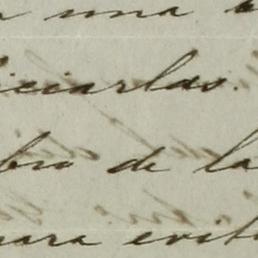 una
iciarlas.
bro de la
para evit